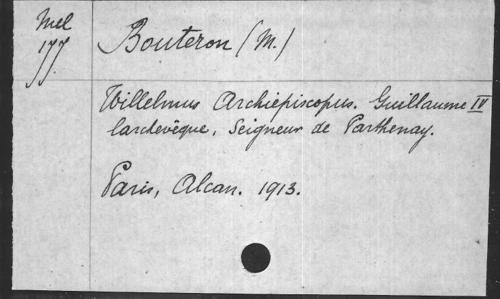 Mel
177.
Bouteron (M.)
Willelmus Archiepiscopus. Guillaume IV
larchevêque, Seigneur de Parthenay.
Paris, Alcan. 1913.